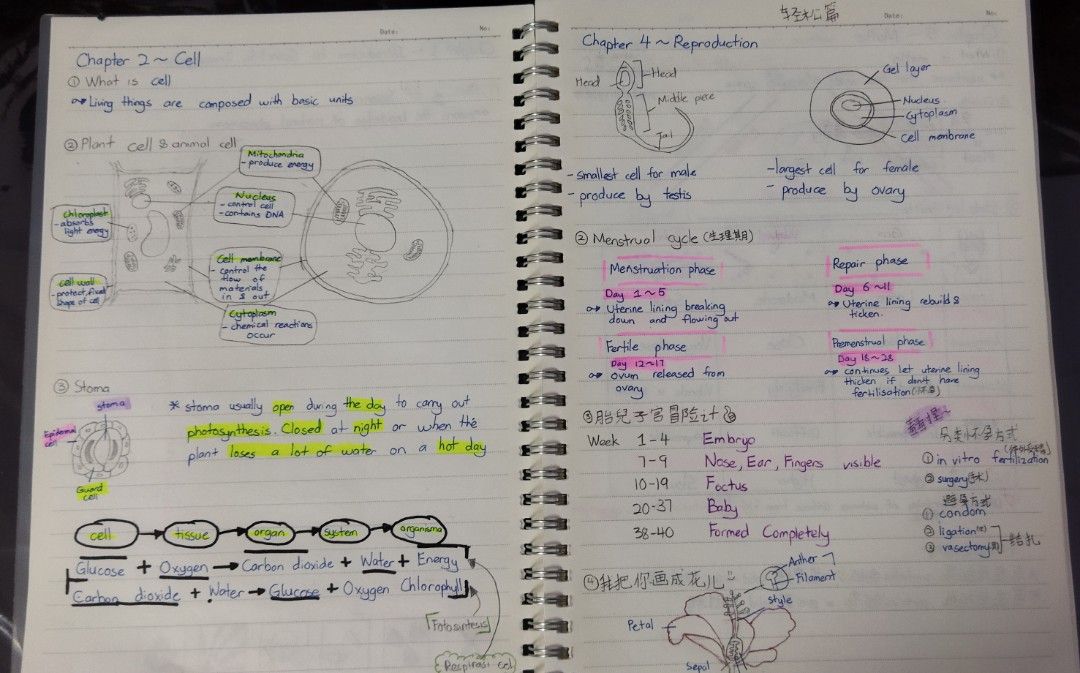 Date:
No:
Chapter 2 ~ Cell
① What is cell
Living things are composed with basic units
② Plant cell & animal cell
Mitochondria
- produce energy
Nucleus
- control cell
- contains DNA
Chloroplast
- absorbs
light energy
Cell membrane
- control the
flow of
materials
in & out
Cell wall
- protect, fixed
shape of cell
Cytoplasm
- chemical reactions
occur
③ Stoma
stoma
Epidermal
cell
Guard
cell
* stoma usually open during the day to carry out
photosynthesis. Closed at night or when the
plant loses a lot of water on a hot day
cell → tissue → organ → system → organisma
Glucose + Oxygen → Carbon dioxide + Water + Energy
Carbon dioxide + Water → Glucose + Oxygen Chlorophyll
Fotosintesis
Respirasi cel
轻松篇
Date:
No:
Chapter 4 ~ Reproduction
Head
Head
Middle piece
Tail
Gel layer
Nucleus
Cytoplasm
Cell membrane
- smallest cell for male
- produce by testis
- largest cell for female
- produce by ovary
② Menstrual cycle (生理期)
Menstruation phase
Day 1~5
Uterine lining breaking
down and flowing out
Repair phase
Day 6~11
Uterine lining rebuild &
ticken.
Fertile phase
Day 12~17
Ovum released from
ovary
Premenstrual phase
Day 18~28
continues let uterine lining
thicken if don't have
fertilisation (怀孕)
③ 胎兒子宫冒险
Week 1-4 Embryo
7-9 Nose, Ear, Fingers visible
10-19 Foctus
20-37 Baby
38-40 Formed Completely
另类怀孕方式
① in vitro fertilization
② surgery (手术)
避孕方式
① condom
② ligation (女)
③ vasectomy (男)
结扎
④ 我把你画成花儿
Anther
Filament
Style
Petal
Sepal